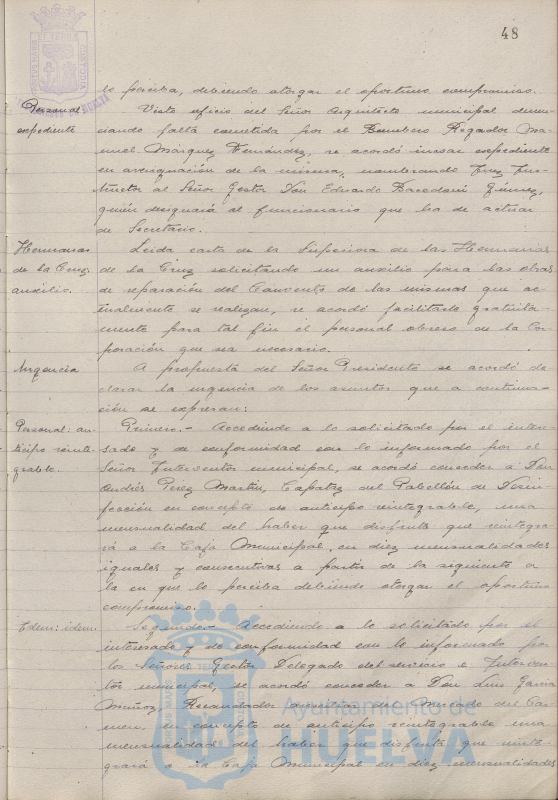 48
lo perciba, debiendo otorgar el oportuno compromiso.
Personal
expediente
Visto oficio del Señor Arquitecto municipal denun-
ciando falta cometida por el Bombero Regador Ma-
nuel Márquez Fernández, se acordó incoar expediente
en averiguación de la misma, nombrando Juez Ins-
tructor al Señor Gestor Don Eduardo Bacedoni Gómez,
quién designará al funcionario que ha de actuar
de Secretario.
Hermanas
de la Cruz
auxilio.
Leida carta de la Superiora de las Hermanas
de la Cruz solicitando un auxilio para las obras
de reparación del Convento de las mismas que ac-
tualmente se realizan, se acordó facilitarle gratuita-
mente para tal fin el personal obrero de la Cor-
poración que sea necesario.
Urgencia
A propuesta del Señor Presidente se acordó de-
clarar la urgencia de los asuntos que a continua-
ción se expresan:
Personal: an-
ticipo reinte-
grable.
Primero.- Accediendo a lo solicitado por el intere-
sado y de conformidad con lo informado por el
Señor Interventor municipal, se acordó conceder a Don
Andrés Pérez Martín, Capataz del Pabellón de Desin-
fección en concepto de anticipo reintegrable, una
mensualidad del haber que disfruta que reintegra-
rá a la Caja Municipal en diez mensualidades
iguales y consecutivas a partir de la siguiente a
la en que lo perciba debiendo otorgar el oportuno
compromiso.
Idem: idem.
Segundo.- Accediendo a lo solicitado por el
interesado y de conformidad con lo informado por
los Señores Gestor Delegado del servicio e Interven-
tor municipal, se acordó conceder a Don Luis García
Muñoz Recaudador auxiliar del Mercado del Car-
men, en concepto de anticipo reintegrable una
mensualidad del haber que disfruta que reinte-
grará a la Caja Municipal en diez mensualidades
Ayuntamiento de
HUELVA